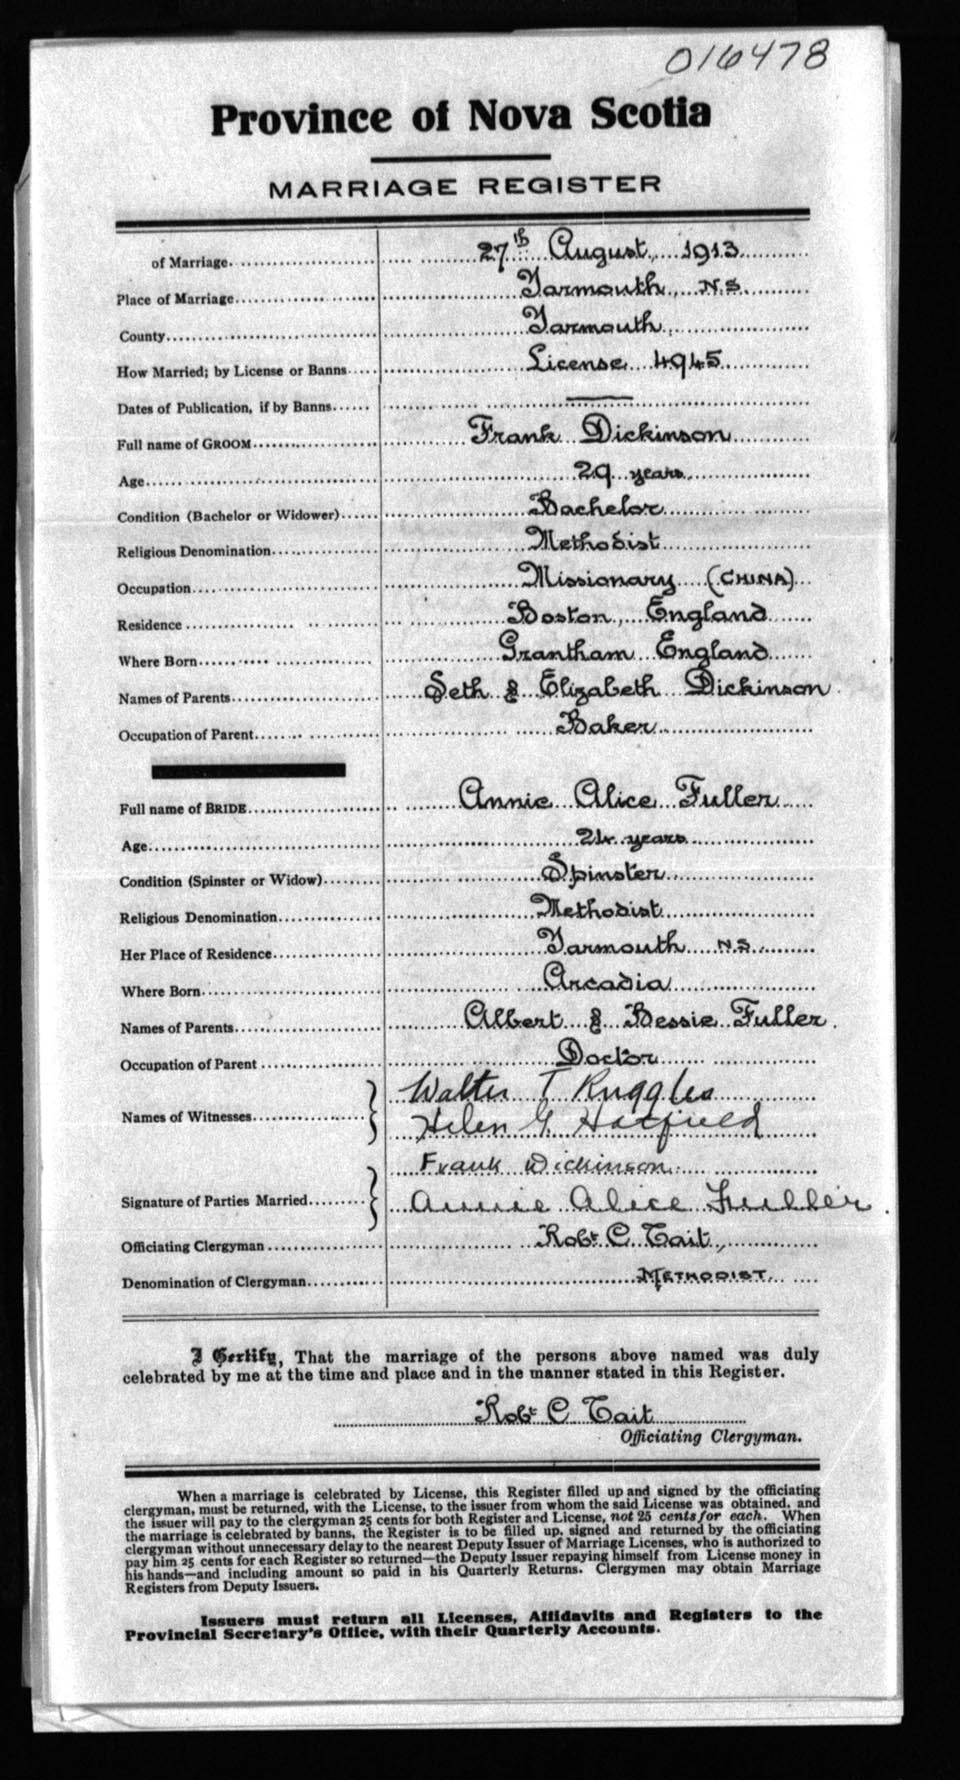 016478
Province of Nova Scotia
MARRIAGE REGISTER
of Marriage 27th August, 1913
Place of Marriage Yarmouth, N.S.
County Yarmouth,
How Married; by License or Banns License 4945
Dates of Publication, if by Banns
Full name of GROOM Frank Dickinson
Age 29 years
Condition (Bachelor or Widower) Bachelor
Religious Denomination Methodist
Occupation Missionary (CHINA)
Residence Boston, England
Where Born Grantham England
Names of Parents Seth & Elizabeth Dickinson
Occupation of Parent Baker
Full name of BRIDE Annie Alice Fuller
Age 24 years
Condition (Spinster or Widow) Spinster
Religious Denomination Methodist
Her Place of Residence Yarmouth N.S.
Where Born Arcadia
Names of Parents Albert & Bessie Fuller.
Occupation of Parent Doctor
Names of Witnesses Walter T Ruggles
Helen G Hatfield
Signature of Parties Married Frank Dickinson
Annie Alice Fuller.
Officiating Clergyman Robt C Tait,
Denomination of Clergyman METHODIST
I Certify, That the marriage of the persons above named was duly
celebrated by me at the time and place and in the manner stated in this Register.
Robt C Tait
Officiating Clergyman.
When a marriage is celebrated by License, this Register filled up and signed by the officiating
clergyman, must be returned, with the License, to the issuer from whom the said License was obtained, and
the issuer will pay to the clergyman 25 cents for both Register and License, not 25 cents for each. When
the marriage is celebrated by banns, the Register is to be filled up, signed and returned by the officiating
clergyman without unnecessary delay to the nearest Deputy Issuer of Marriage Licenses, who is authorized to
pay him 25 cents for each Register so returned—the Deputy Issuer repaying himself from License money in
his hands—and including amount so paid in his Quarterly Returns. Clergymen may obtain Marriage
Registers from Deputy Issuers.
Issuers must return all Licenses, Affidavits and Registers to the
Provincial Secretary's Office, with their Quarterly Accounts.